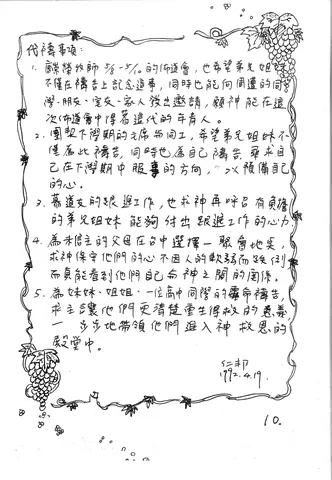 代禱事項:
1. 榮牧師 5/8-5/10 的佈道會,也希望弟兄姐妹
不僅在禱告上記念這事,同時也能向周遭的同
學、朋友、室友、家人發出邀請,願神能在這
次佈道會中得著這代的年青人。
2. 團契下學期的主席與同工,希望弟兄姐妹不
僅為此禱告,同時也為自己禱告,尋求自
己在下學期中服事的方向,以預備自己
的心。
3. 慕道友的跟進工作,也求神再呼召有負擔
的弟兄姐妹能夠付出跟進工作的心力。
4. 為未信主的父母在台中選擇一聚會地點,
求神保守他們的心不因人的軟弱而跌倒
而真能看到他們自己與神之間的關係。
5. 為妹妹、姐姐、一位高中同學的靈命禱告,
求主讓他們更清楚重生得救的意義
一步步地帶領他們進入神救恩的
殿堂中。
仁邦
1992.4.19.
10.